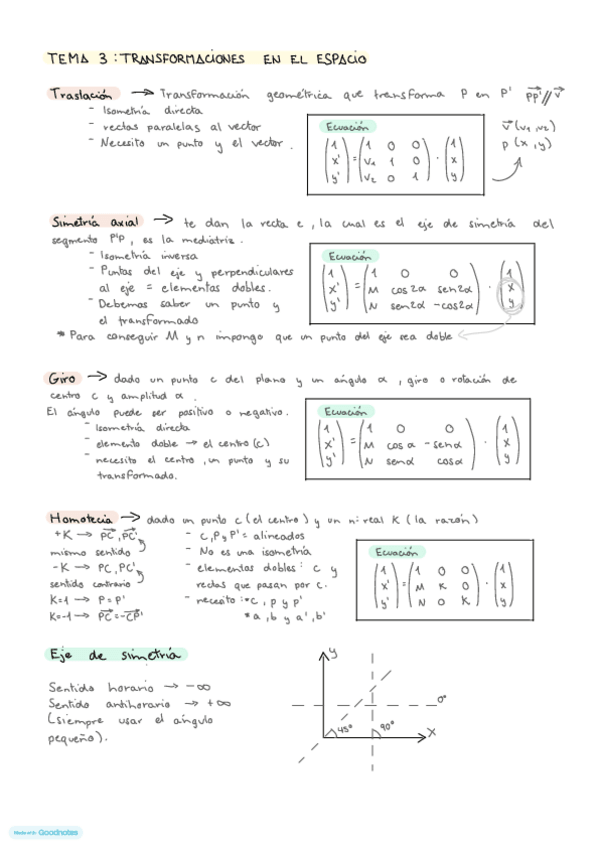 TEMA 3 : TRANSFORMACIONES EN EL ESPACIO
Traslación → Transformación geométrica que transforma P en P' PP' // v
- Isometría directa
- rectas paralelas al vector
- Necesito un punto y el vector.
Ecuación
(1 x' y') = (1 0 0
v1 1 0
v2 0 1) · (1 x y)
v (v1, v2)
p (x, y)
Simetría axial → te dan la recta e, la cual es el eje de simetría del
segmento P'P, es la mediatriz.
- Isometría inversa
- Puntos del eje y perpendiculares
al eje = elementos dobles.
- Debemos saber un punto y
el transformado
* Para conseguir M y n impongo que un punto del eje sea doble
Ecuación
(1 x' y') = (1 0 0
M cos2α sen2α
N sen2α -cos2α) · (1 x y)
Giro → dado un punto c del plano y un ángulo α, giro o rotación de
centro c y amplitud α.
El ángulo puede ser positivo o negativo.
- Isometría directa
- elemento doble → el centro (c)
- necesito el centro, un punto y su
transformado.
Ecuación
(1 x' y') = (1 0 0
M cosα -senα
N senα cosα) · (1 x y)
Homotecia → dado un punto c (el centro) y un nº real K (la razón)
+K → PC, PC'
mismo sentido
-K → PC, PC'
sentido contrario
K=1 → P=P'
K=-1 → PC=-CP'
- C, P y P' = alineados
- No es una isometría
- elementos dobles: c y
rectas que pasan por c.
- necesito: *c, p y p'
*a, b y a', b'
Ecuación
(1 x' y') = (1 0 0
M K 0
N 0 K) · (1 x y)
Eje de simetría
Sentido horario → -∞
Sentido antihorario → +∞
(siempre usar el ángulo
pequeño).
y
0°
45°
90°
x
Made with Goodnotes